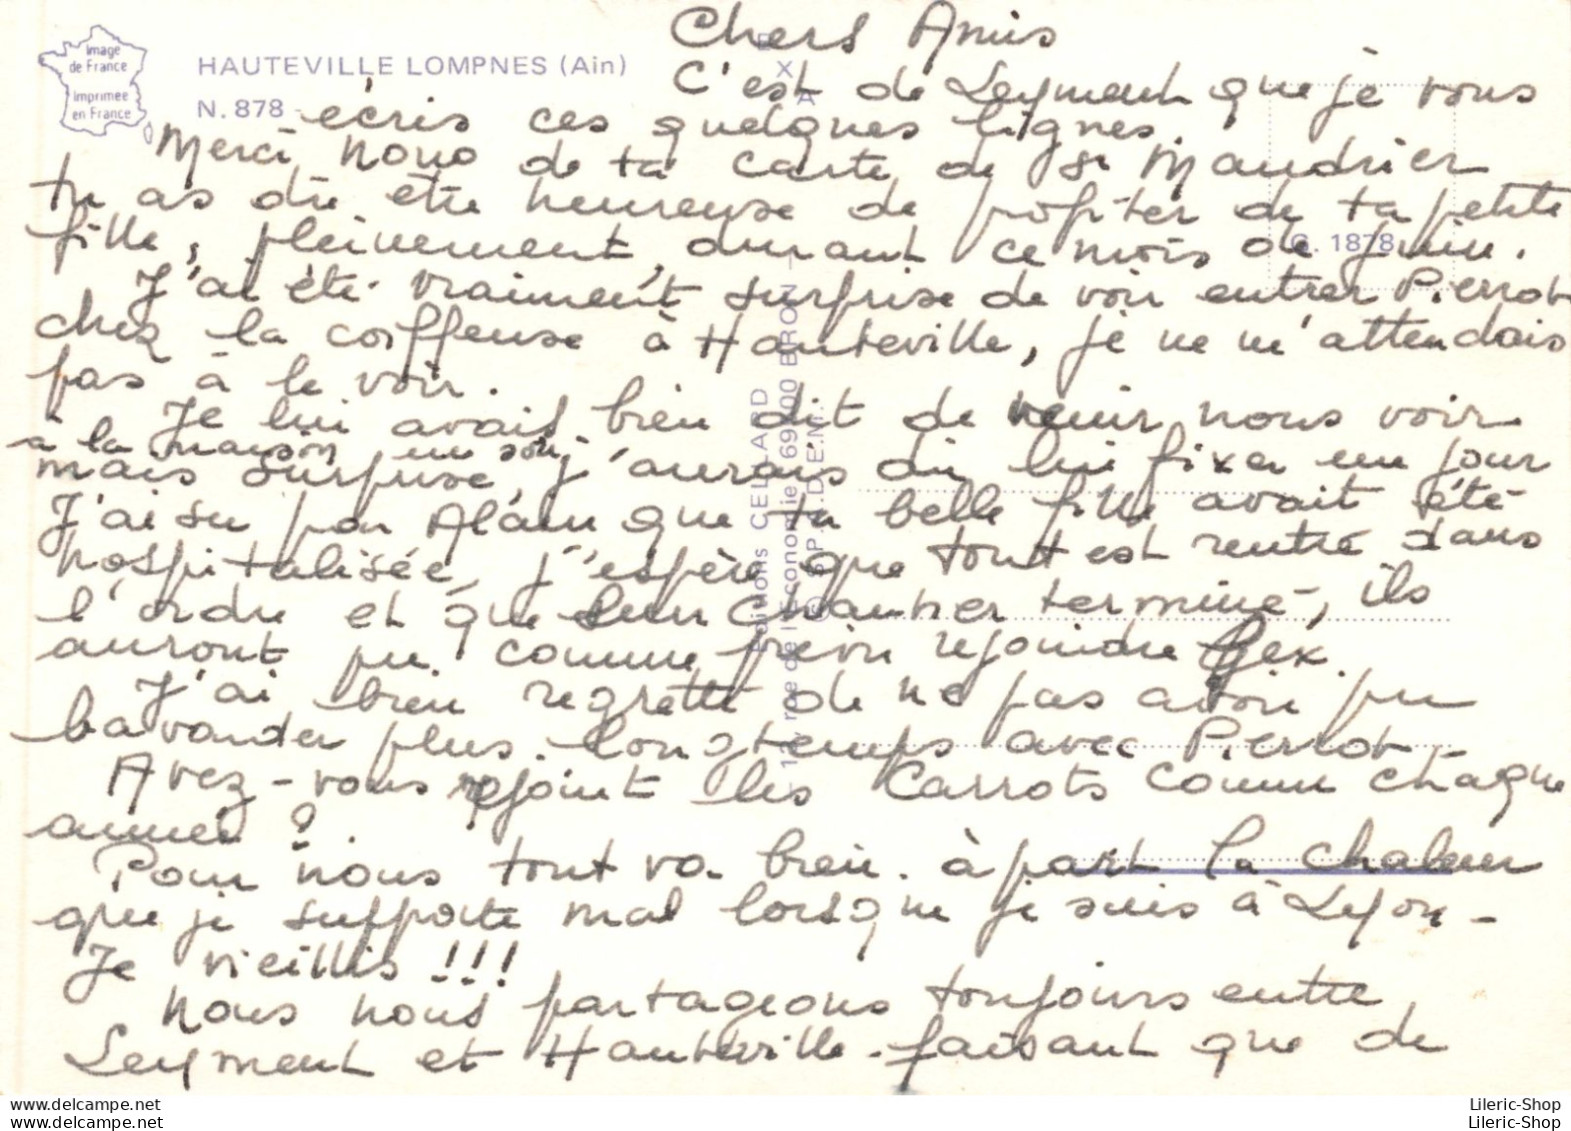 Image
de France
Imprimée
en France
HAUTEVILLE LOMPNES (Ain)
N. 878
G. 1878
Editions CELLARD
Chers Amis
C'est de Leyment que je vous
écris ces quelques lignes.
Merci Nono de ta carte de St Mandrier
tu as dû être heureuse de profiter de ta petite
fille, pleinement, durant ce mois de juin.
J'ai été vraiment surprise de voir entrer Pierrot
chez la coiffeuse à Hauteville, je ne m'attendais
pas à le voir.
Je lui avais bien dit de venir nous voir
à la maison un soir
mais surprise, j'aurais dû lui fixer un jour
J'ai su par Alain que ta belle fille avait été
hospitalisée, j'espère que tout est rentré dans
l'ordre et que leur chantier terminé, ils
auront pu comme prévu rejoindre Gex.
J'ai bien regretté de ne pas avoir pu
bavarder plus longtemps avec Pierrot -
Avez-vous rejoint les Carrots comme chaque
année ?
Pour nous tout va bien. à part la chaleur
que je supporte mal lorsque je suis à Lyon -
Je vieillis !!!
Nous nous partageons toujours entre
Leyment et Hauteville. faisant que de
Lileric-Shop
Lileric-Shop
https://www.delcampe.net
https://www.delcampe.net